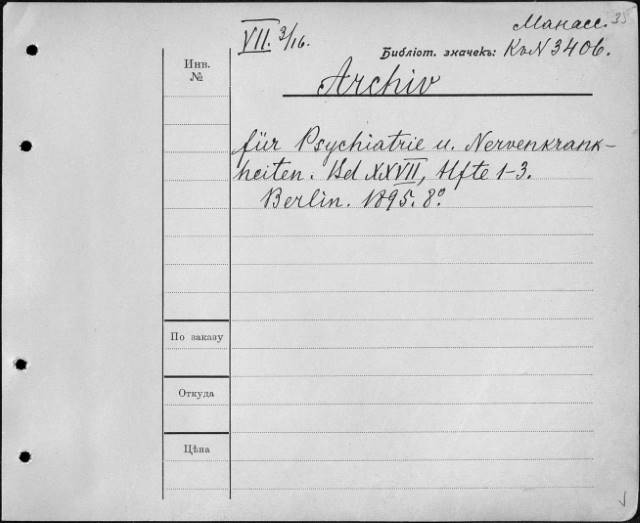 Манасс. 35
VII. 3/16.
Библiот. значекъ: КоN 3406.
Инв.
№
Archiv
für Psychiatrie u. Nervenkrank-
heiten. Bd XXVII, Hfte 1-3.
Berlin. 1895. 8°
По заказу
Откуда
Цѣна